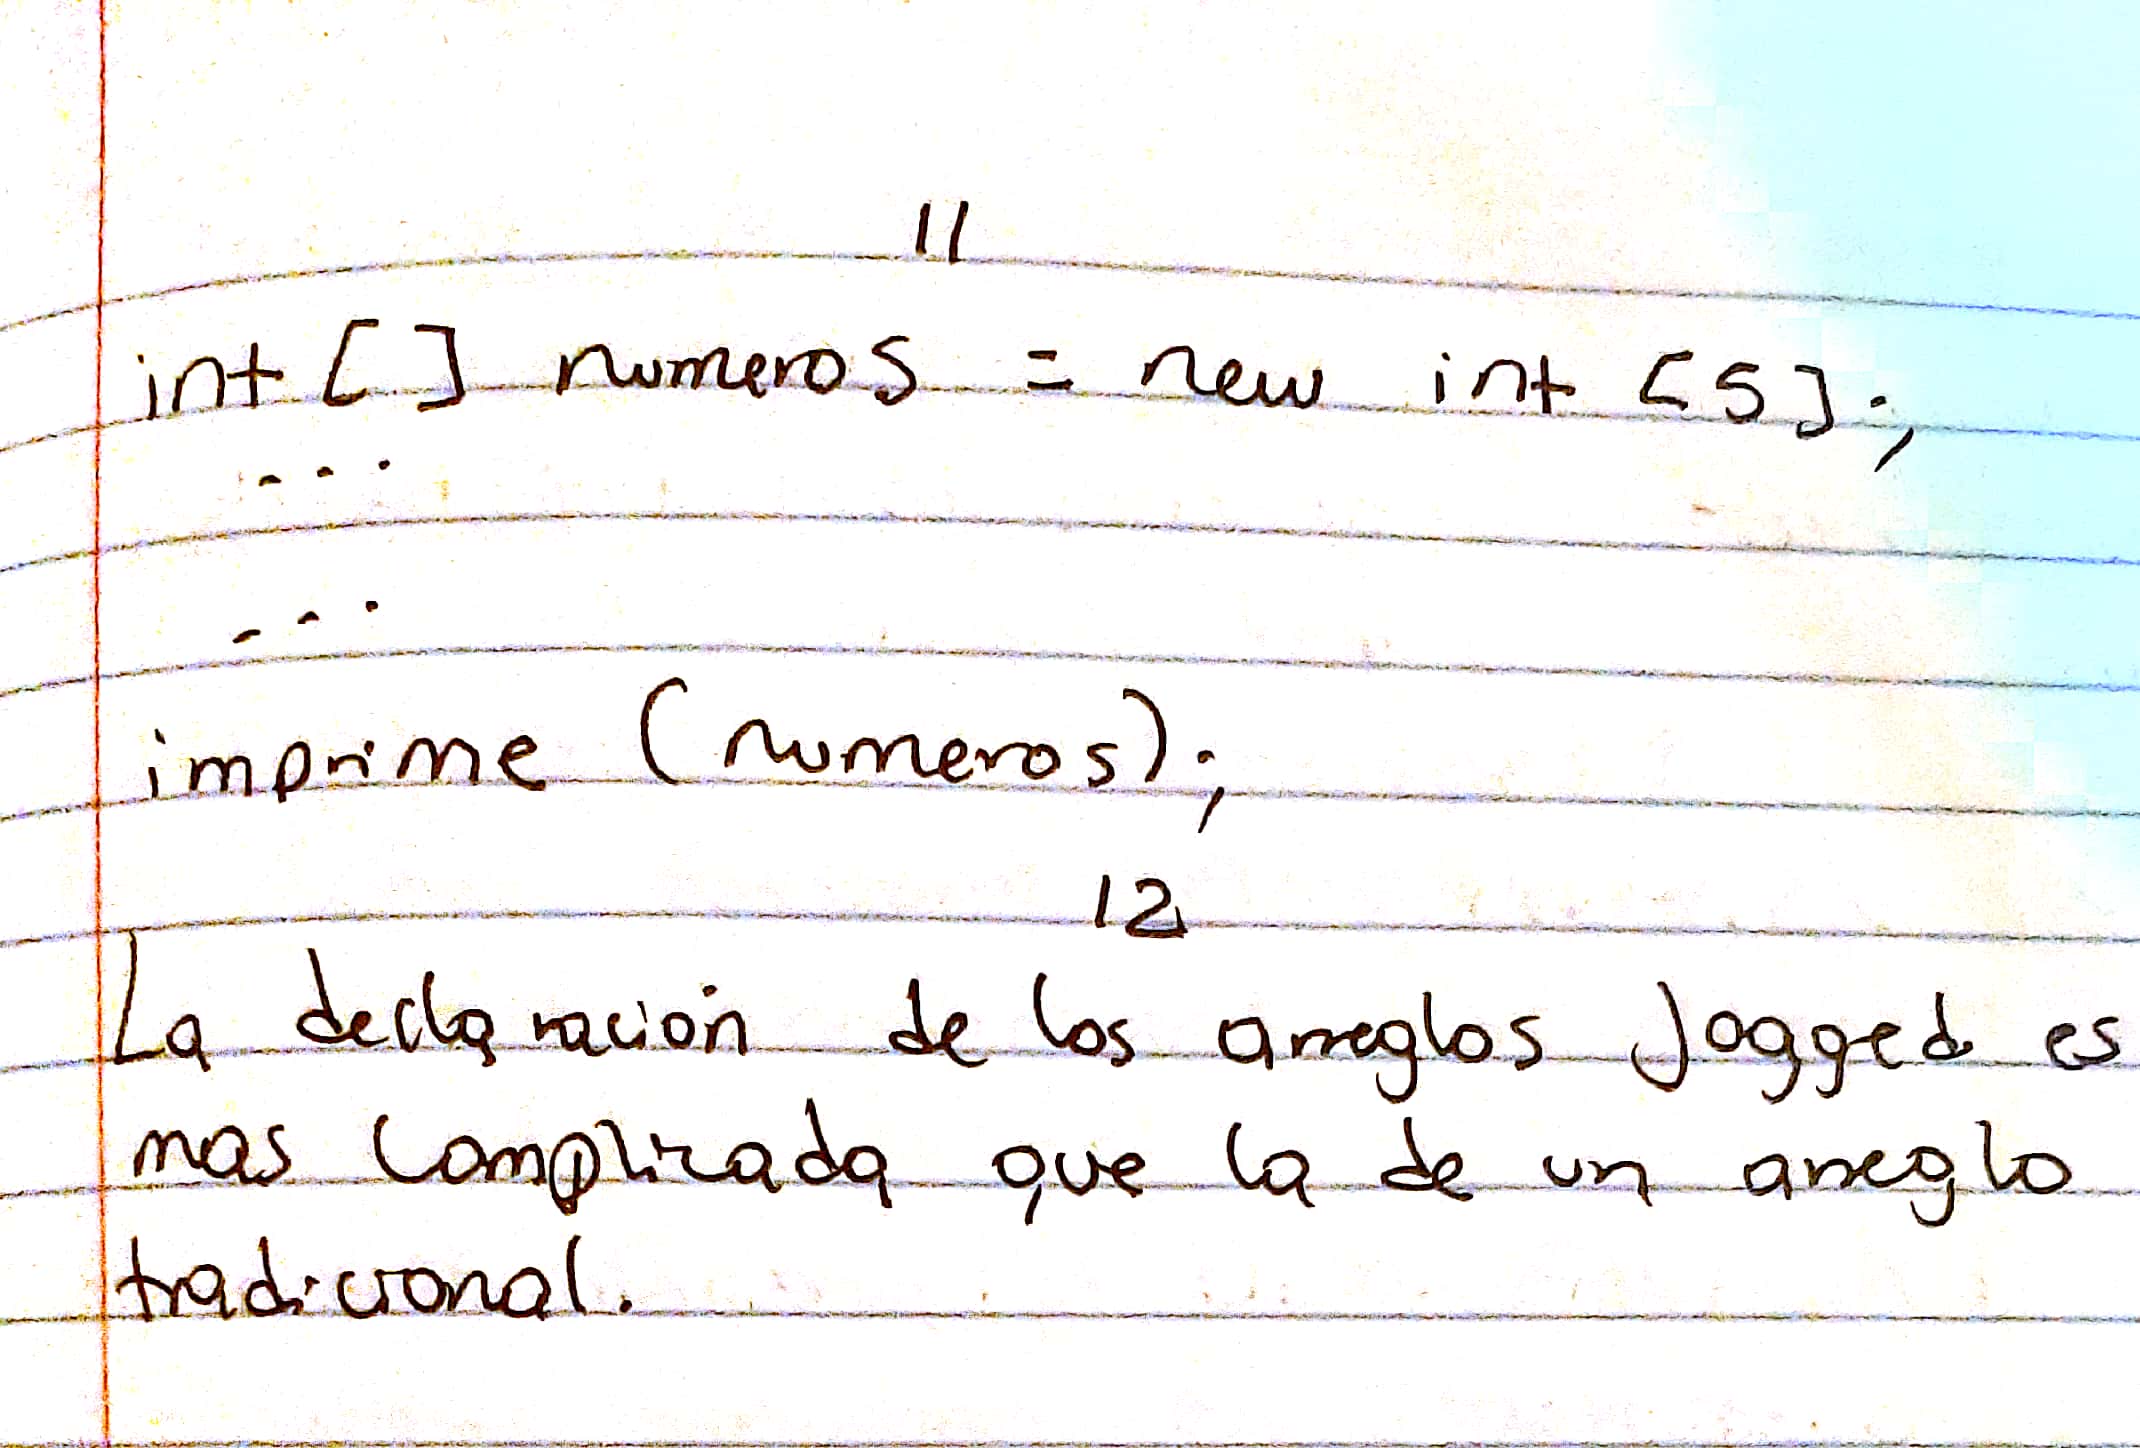 11
int [] numeros = new int [5];
...
...
imprime (numeros);
12
La declaración de los arreglos Jagged es
mas complicada que la de un arreglo
tradicional.